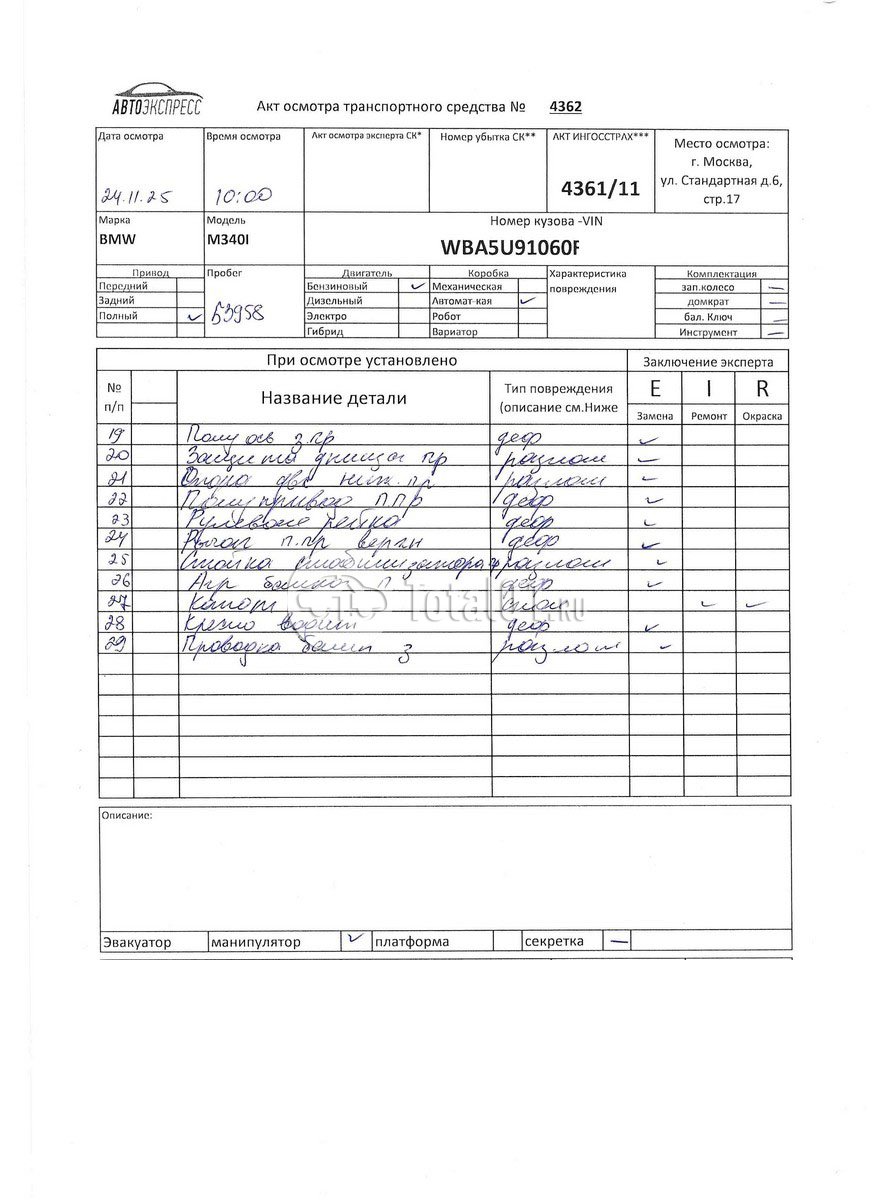 АВТОЭКСПРЕСС
Акт осмотра транспортного средства № 4362
Дата осмотра Время осмотра Акт осмотра эксперта СК* Номер убытка СК** АКТ ИНГОССТРАХ*** Место осмотра:
г. Москва,
ул. Стандартная д.6,
стр.17
24.11.25 10:00 4361/11
Марка Модель Номер кузова -VIN
BMW M340I WBA5U91060F
Привод Пробег Двигатель Коробка Характеристика повреждения Комплектация
Передний Бензиновый ✓ Механическая зап.колесо —
Задний Дизельный Автомат-кая ✓ домкрат —
Полный ✓ 53958 Электро Робот бал. Ключ —
Гибрид Вариатор Инструмент —
При осмотре установлено Заключение эксперта
№ п/п Название детали Тип повреждения (описание см.Ниже E I R
Замена Ремонт Окраска
19 Полуось з.пр деф ✓
20 Защита днища пр разлом ✓
21 Опора две ниж. пр разлом ✓
22 Полупривод п.пр деф ✓
23 Рулевая рейка деф ✓
24 Рычаг п.пр верхн деф ✓
25 Стойка стабилизатора разлом ✓
26 деф ✓
27 Капот ✓ ✓
28 деф ✓
29 Проводка з разлом ✓
Total01.RU
Описание:
Эвакуатор манипулятор ✓ платформа секретка —